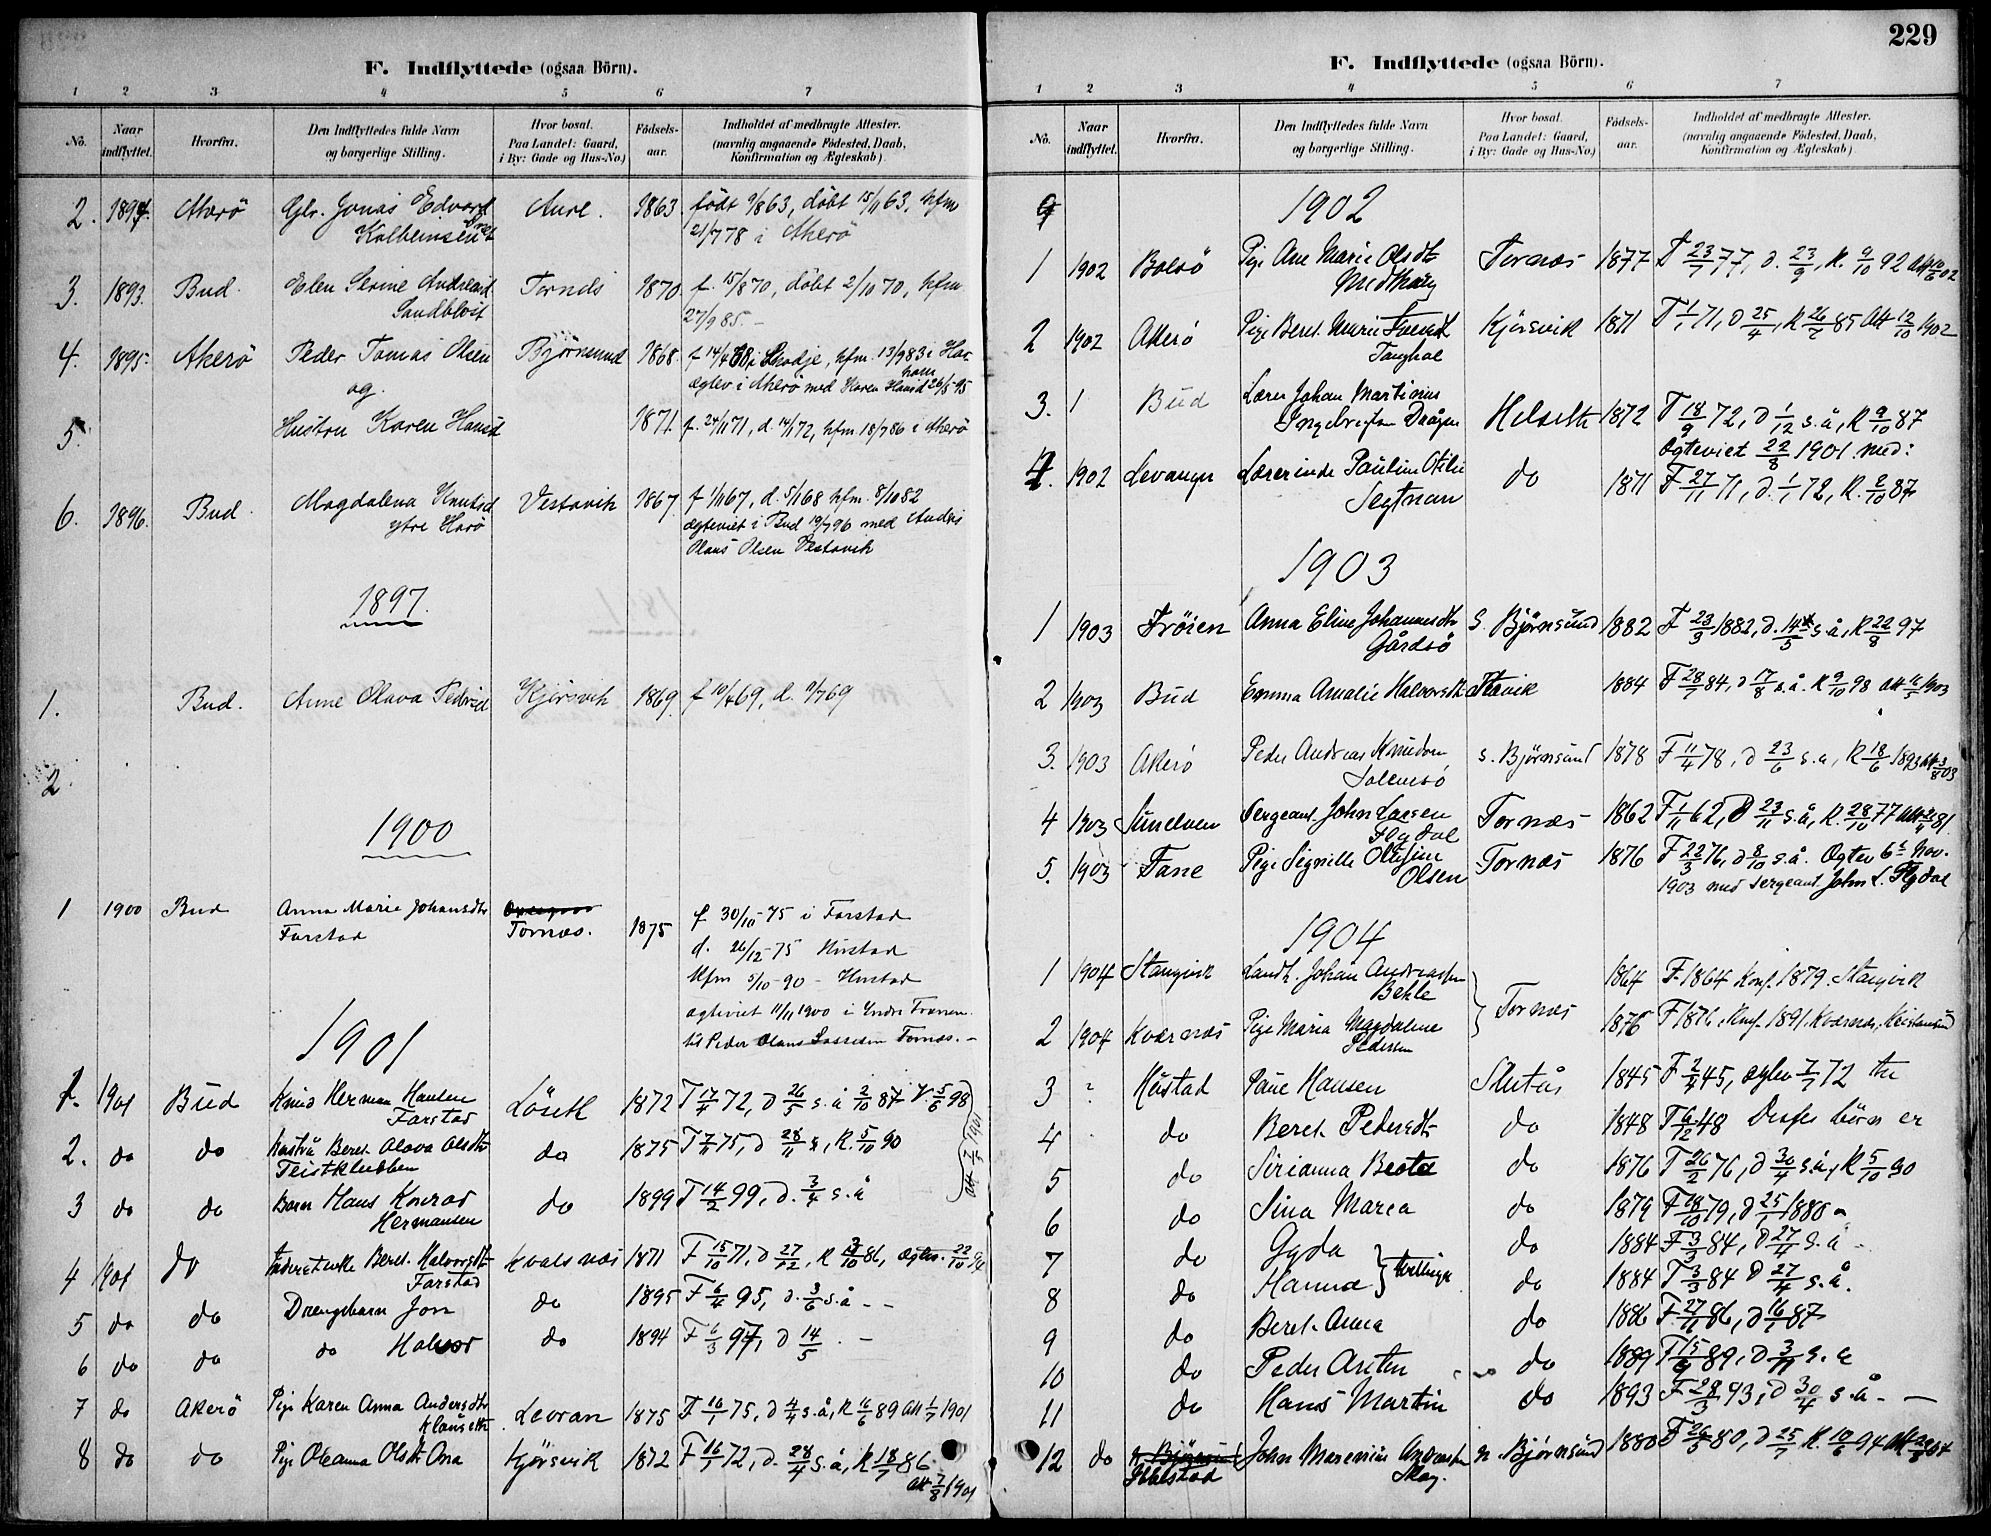 F. Indflyttede (ogsaa Börn).
1 2 3 4 5 6 7
No. Naar indflyttet. Hvorfra. Den Indflyttedes fulde Navn og borgerlige Stilling. Hvor bosat. Paa Landet: Gaard, i By: Gade og Hus-No.) Fødsels-aar. Indholdet af medbragte Attester. (navnlig angaaende Födested, Daab, Konfirmation og Ægteskab).
2. 1894. Akerö Glr. Jonas Edvard Aure. 1863 født 9/8 63, döbt 15/11 63, kfm
Kolbeinsen 21/7 78 i Akerö
3. 1893. Bud. Elen Serine Andreasd Tornæs 1870 f. 15/8 70, döbt 2/10 70, kfm
Sandbløst 27/9 85.
4. 1895. Akerö Peder Tomas Olsen Björnsund 1868 f 14/4 68 i Skodje, kfm. 13/9 83 i Har
og. ægtev i Akerö med Karen Hansd 26/5 95
5 Hustru Karen Hansd 1871 f. 24/11 71, d. 14/1 72, kfm. 18/7 86 i Akerö
6. 1896. Bud. Magdalena Knutsd Vestavik 1867 f 1/11 67, d. 5/1 68 kfm. 8/10 82
ytre Harö ægteviet i Bud 19/7 96 med Anders
Olaus Olsen Vestavik
1897.
1. Bud. Anne Olava Pedersd Kjörsvik 1869. f 10/4 69, d. 11/7 69
2.
1900
1 1900 Bud Anna Marie Johansdtr Tornæs. 1875 f 30/10-75 i Farstad
Farstad d. 26/12-75 Hustad
Kfm 5/10-90 - Hustad
ægteviet 11/11 1900 i Yndre Frænen
til Peder Olaus Lassesen Tornæs.
1901
1. 1901 Bud Knud Herman Hansen Löseth 1872 F 17/4 72, D 26/5 s.å 2/10 87 V. 5/6 98
Farstad
2. do do Hustru Beret Olava Olsdtr do 1875 F 7/11 75, D 28/11 s, K. 5/10 90
Teistklubben Att 7/5 1901
3 do do Barn Hans Konrad do 1899 F 14/2 99, D. 3/4 s.å
Hermansen
4 1901 do Beret Halvorsdt Kvalsnæs 1871 F 15/10 71, D 27/12, K 3/10 86,
Farstad
5 do do Drengebarn Jon do 1895 F 6/4 95, D. 3/6 s.å
6 do do do Halvor do 1894 F 6/3 97, D 14/5
7 do Akerö Pige Karen Anna Andersdtr Levran 1875 F 16/1 75, D. 4/4 s.å, K 16/6 89 Att 1/7 1901
Klausetr
8 do do Pige Oleanna Olsdt Ona Kjörsvik 1872 F 16/1 72, D. 28/4 s.å, K 18/7 86
Att 7/8 1901
229
F. Indflyttede (ogsaa Börn).
1 2 3 4 5 6 7
No. Naar indflyttet. Hvorfra. Den Indflyttedes fulde Navn og borgerlige Stilling. Hvor bosat. Paa Landet: Gaard, i By: Gade og Hus-No.) Fødsels-aar. Indholdet af medbragte Attester. (navnlig angaaende Födested, Daab, Konfirmation og Ægteskab).
1902
1 1902 Bolsö Pige Ane Marie Olsdtr Tornæs 1877 F 23/7 77, D. 23/9, K. 9/10 92
2 1902 Akerö Pige Beret Marie Kjörsvik 1871 F 1/1 71, D 25/4, K 26/7 85 Att 12/10 1902
Tanghol
3. Bud Lærer Johan Martinius Helseth 1872 F 18/9 72, D 1/12 s.å, K 9/10 87
Ingebrigtsen Daagen Ægteviet 22/8 1901 med:
4. 1902 Levanger Lærerinde Pauline Otilie do 1871 F 27/11 71, D. 1/1 72, K. 2/10 87
Segtnan
1903
1 1903 Frøien Anna Eline Johannesdtr S. Björnsund 1882 F 23/3 1882, D. 14/5 s.å, K 22/8 97
Gårdsö
2 1903 Bud Emma Amalie Halvorsdt Stavik 1884 F 28/7 84, D 17/8 s.å. K 9/10 98 Att 11/5 1903
3. 1903 Akerö Peder Andreas Knudsen S. Björnsund 1878 F 11/4 78, D 23/6 s.a, K 18/6 1893 Att 3/8 03
Solemsö
4 1903 Sundalen Sergeant John Larsen Tornæs 1862 F 1/11 62, D 23/11 s.å, K. 28/10 77
Flydal
5. 1903 Fane Pige Signille Oline Tornæs 1876 F 22/3 76, D 8/10 s.å. Ægtev 6te Nov.
Olsen 1903 med Sergeant John L. Flydal
1904
1 1904 Stangvik Landh. Johan Andreassen Tornæs 1864 F. 1864 Konf. 1879. Stangvik
Behle
2 1904 Kværnæs Pige Maria Magdalene 1876 F 1876, Konf. 1891. Kværnæs, Kristiansund
Pedersen
3 Hustad Pane Hansen Slutås 1845 F 2/4 45, ægtev 7/7 72
4 do Beret Pedersdtr do 1848 F 6/12 48 Deres börn er
5 do Sirianna Beata do 1876 F 26/2 76, D 30/4 s.å, K 5/10 90
6 do Sina Marea do 1879 F 18/10 79, D 25/1 1880
7 do Gyda do 1884 F 3/3 84, D 27/4 s.å
8 do Hanna tvillinge do 1884 F 3/3 84 D 27/4 s.å.
9 do Beret Anna do 1886 F. 27/11 86, D 16/1 87
10 do Peder Arsten do 1889 F 15/9 89, D 3/11 s.a
11 do Hans Martin do 1893 F 28/3 93, D 30/4 s.å
12 do John Marenius Andreassen N. Björnsund 1880 F 26/5 80, D 25/7 K. 10/6 94
Skog.